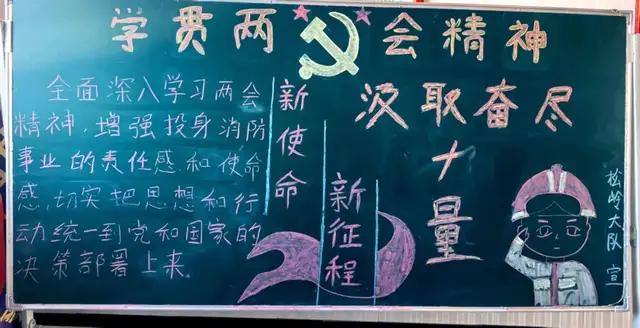 学贯两会精神
全面深入学习两会
精神，增强投身消防
事业的责任感和使命
感，切实把思想和行
动统一到党和国家的
决策部署上来。
新使命
新征程
汲取奋尽
十量
松岭大队 宣